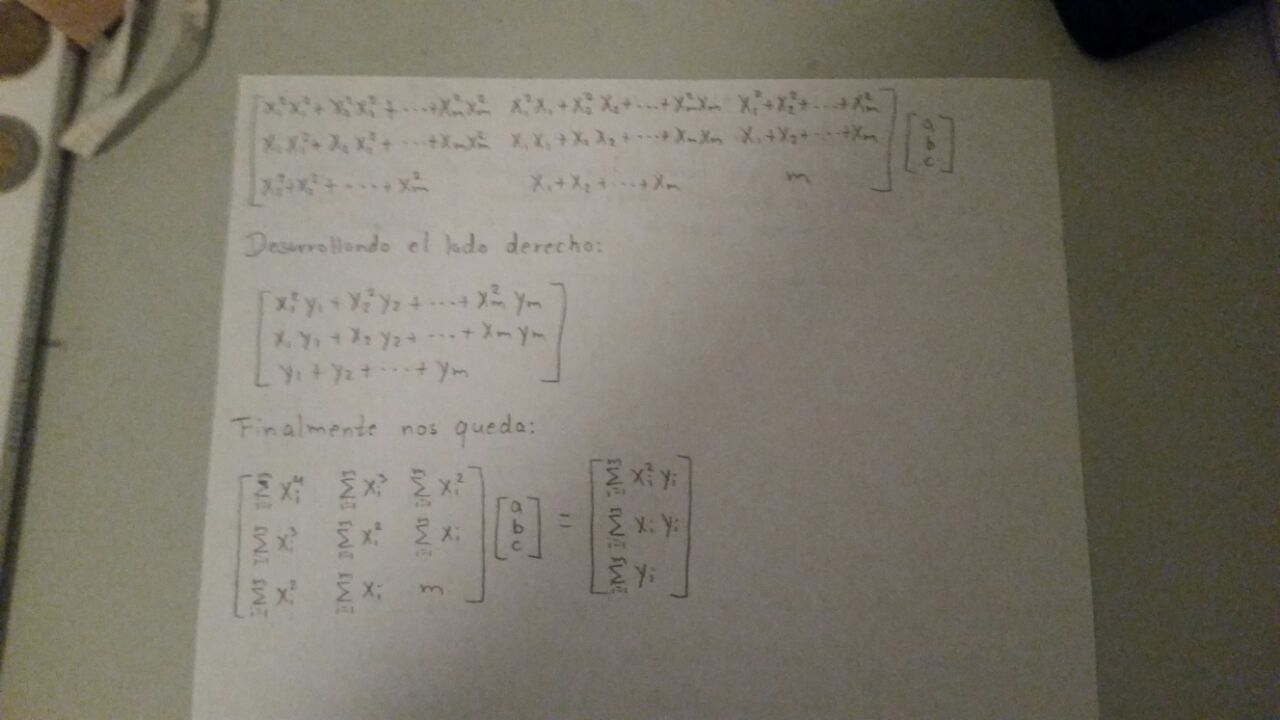 x₁²x₁² + x₂²x₂² + ... + xₘ²xₘ² x₁²x₁ + x₂²x₂ + ... + xₘ²xₘ x₁² + x₂² + ... + xₘ²
x₁x₁² + x₂x₂² + ... + xₘxₘ² x₁x₁ + x₂x₂ + ... + xₘxₘ x₁ + x₂ + ... + xₘ
x₁² + x₂² + ... + xₘ² x₁ + x₂ + ... + xₘ m
a
b
c
Desarrollando el lado derecho:
x₁²y₁ + x₂²y₂ + ... + xₘ²yₘ
x₁y₁ + x₂y₂ + ... + xₘyₘ
y₁ + y₂ + ... + yₘ
Finalmente nos queda:
∑ᵢ₌₁ᵐ xᵢ⁴ ∑ᵢ₌₁ᵐ xᵢ³ ∑ᵢ₌₁ᵐ xᵢ²
∑ᵢ₌₁ᵐ xᵢ³ ∑ᵢ₌₁ᵐ xᵢ² ∑ᵢ₌₁ᵐ xᵢ
∑ᵢ₌₁ᵐ xᵢ² ∑ᵢ₌₁ᵐ xᵢ m
a
b
c
=
∑ᵢ₌₁ᵐ xᵢ²yᵢ
∑ᵢ₌₁ᵐ xᵢyᵢ
∑ᵢ₌₁ᵐ yᵢ